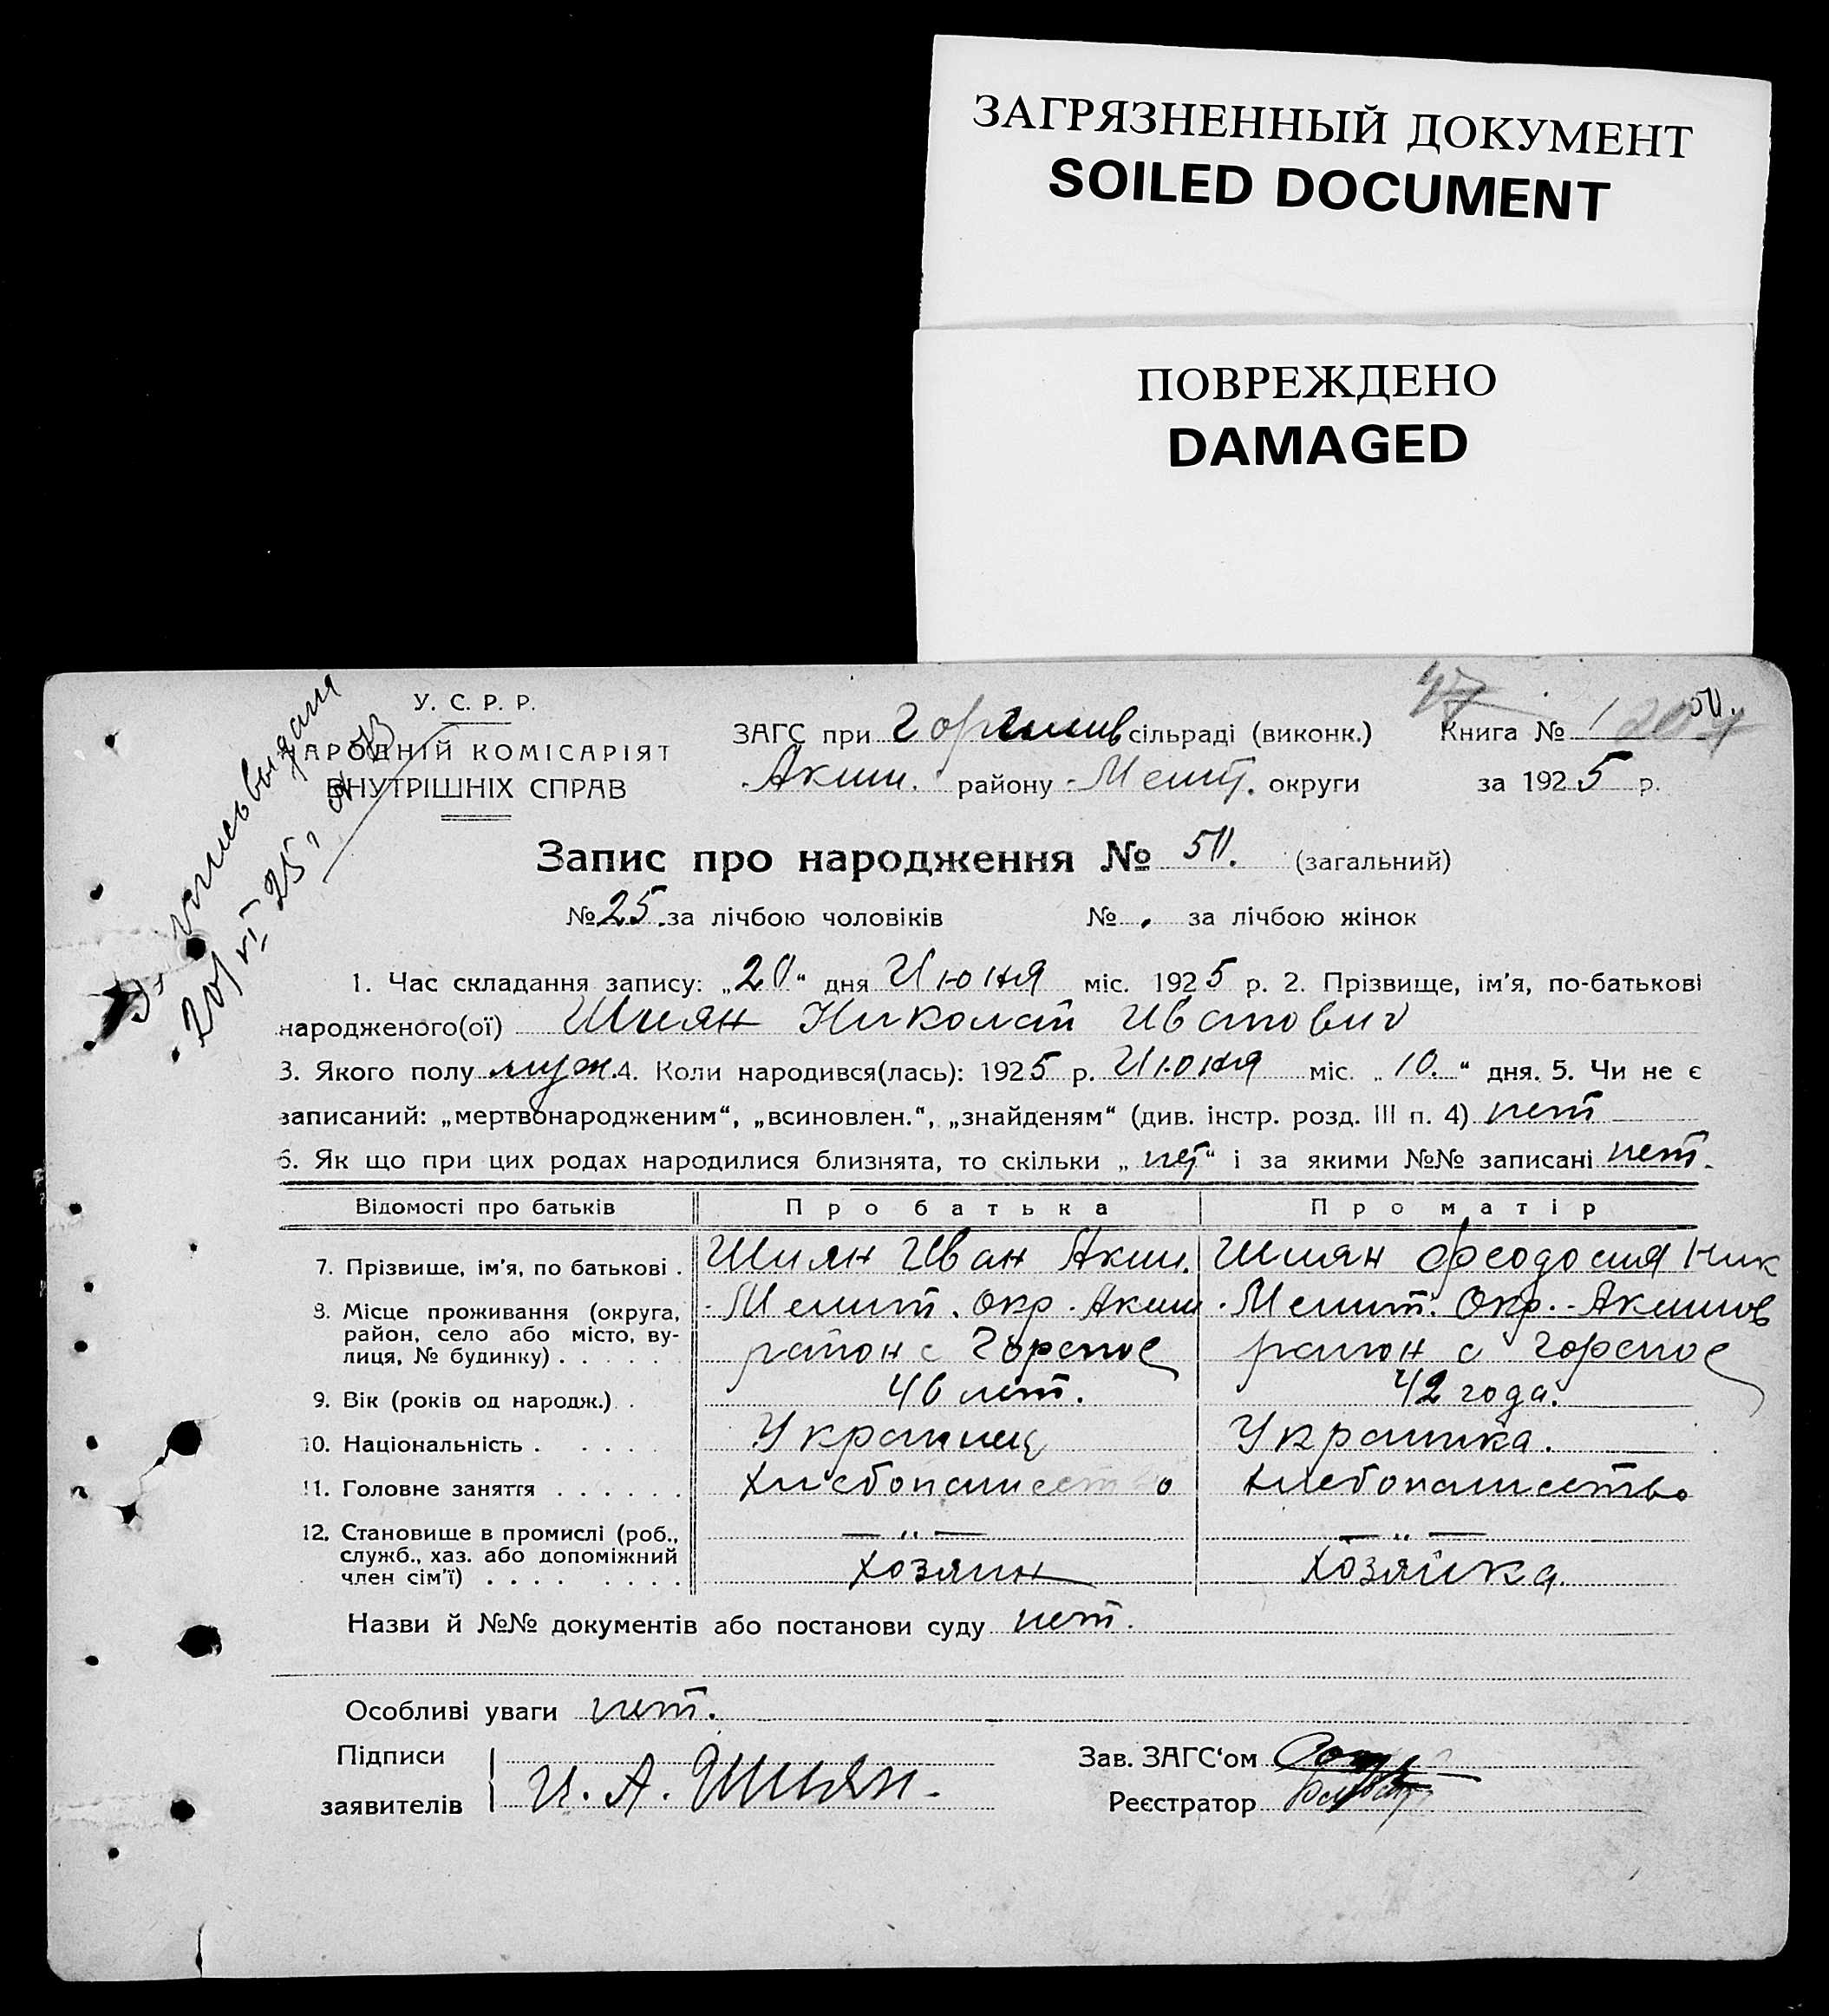 ЗАГРЯЗНЕННЫЙ ДОКУМЕНТ
SOILED DOCUMENT
ПОВРЕЖДЕНО
DAMAGED
47
50.
У. С. Р. Р.
НАРОДНІЙ КОМІСАРІЯТ
ВНУТРІШНІХ СПРАВ
ЗАГС при сільраді (виконк.) Книга № 1
Аким. району Мелит. округи за 1925 р.
выпись выдана
20/VI 25 г.
Запис про народження № 50. (загальний)
№ 25. за лічбою чоловіків № . за лічбою жінок
1. Час складання запису: „20“ дня Июня міс. 1925 р. 2. Прізвище, ім'я, по-батькові
народженого(ої) Шиян Николай Иванович
3. Якого полу муж. 4. Коли народився(лась): 1925 р. Июня міс. „10.“ дня. 5. Чи не є
записаний: „мертвонародженим“, „всиновлен.“, „знайденям“ (див. інстр. розд. III п. 4) нет
6. Як що при цих родах народилися близнята, то скільки „нет“ і за якими №№ записані нет.
Відомості про батьків Про батька Про матір
7. Прізвище, ім'я, по батькові . Шиян Иван Аким. Шиян Феодосия Ник
8. Місце проживання (округа, Мелит. Окр. Аким Мелит. Окр. Акимов
район, село або місто, ву- район с Горепое район с Горепое
лиця, № будинку) . . . . . .
9. Вік (років од народж.) . 46 лет. 42 года.
10. Національність . . . . . Украинец Украинка.
11. Головне заняття . . . . . . Хлебопашество Хлебопашество
12. Становище в промислі (роб., — „ — — „ —
служб., хаз. або допоміжний хозяин хозяйка.
член сім'ї) . . . . . . . .
Назви й №№ документів або постанови суду нет.
Особливі уваги нет.
Підписи
заявителів И. А. Шиян.
Зав. ЗАГС'ом
Реєстратор